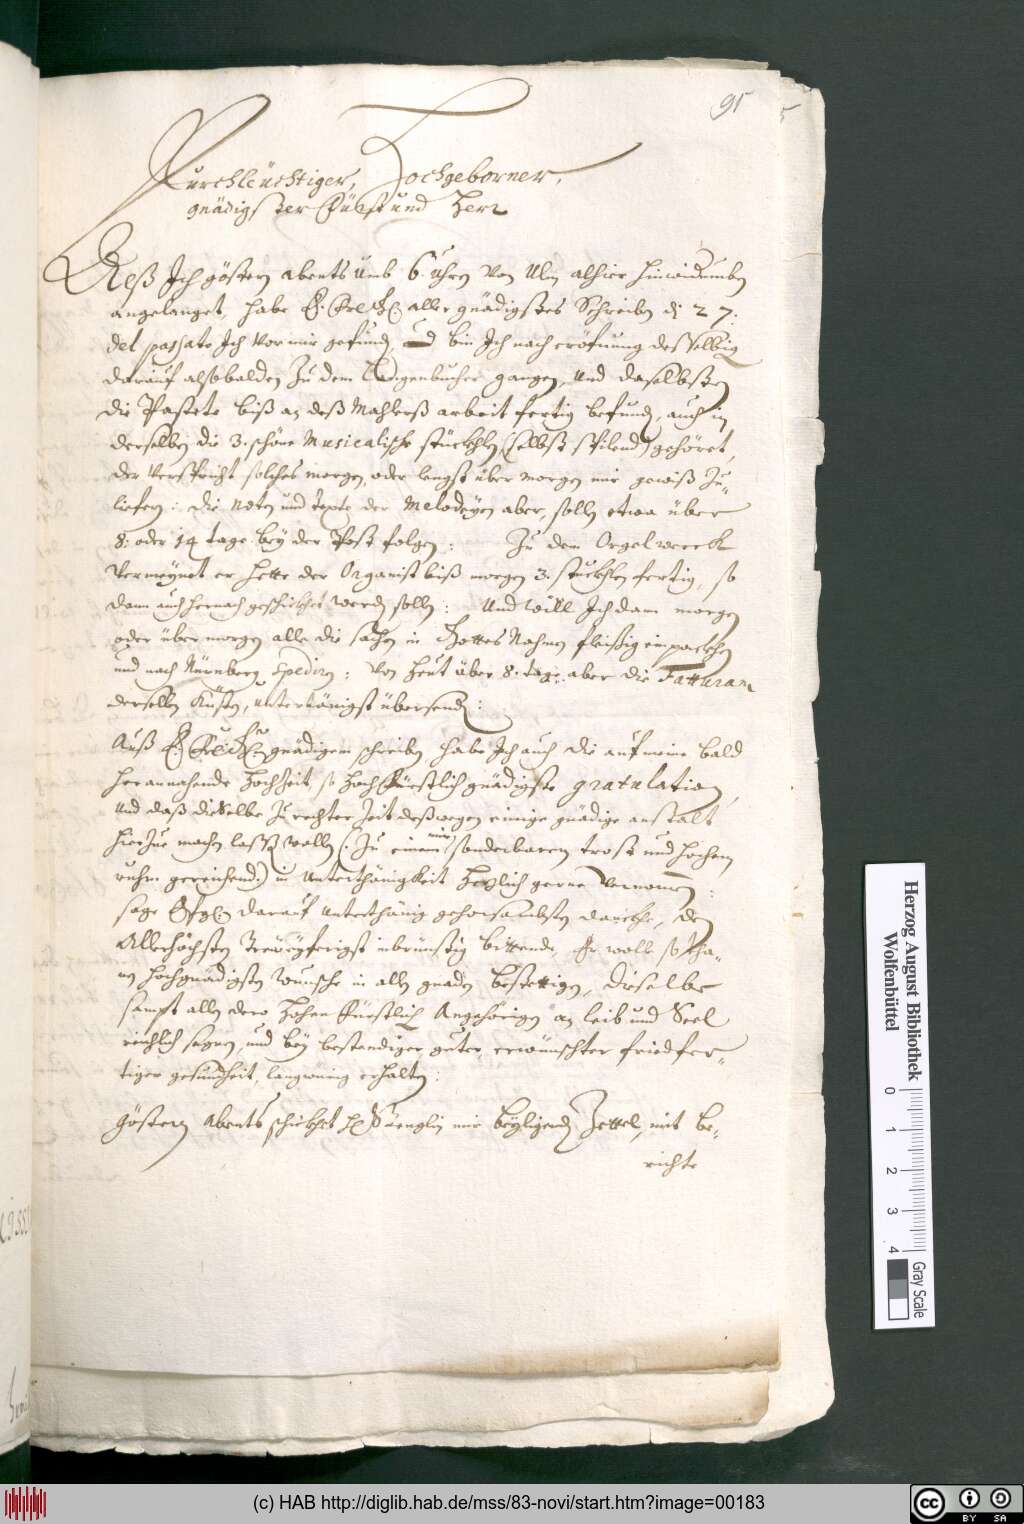 91
5
Durchleüchtiger, Hochgeborner,
gnädigster Fürst und Herr
Alß Ich göstern abents umb 6. Uhrn von Ulm alhier hinwiderumben
angelanget, habe E. allergnädigstes Schreiben di 27:
del passato Ich vor mir gefunden, und bin Ich nach eröfnung desselbig
darauf alsobalden zu dem Langenbucher gangen, und daselbsten
die Pastete biß an deß Mahlerß arbeit fertig befunden, auch in
derselben die 3. schöne Musicalische stückhlen (selbst spilend) gehöret,
der verspricht solches morgen, oder lengst über morgen mir gewiß zu-
liefern: die noten und texte der Melodeyen aber, sollen etwa über
8: oder 14 tage bey der Post folgen: Zu dem Orgelwerck
vermeynet er hette der Organist biß morgen 3. stückhlen fertig, so
dann auch hernach geschickhet werden sollen: Und will Ich dann morgen
oder übermorgen alle die sachen in Gottes Nahmen fleißig einpackhen
und nach Nürnberg spediren: von heut über 8. tage aber die Fatturam
derselben Küsten, unterthänigst übersenden:
Auß E. gnädigem schreiben habe Ich auch die auf meine bald
herannahende Hochzeit, so hochfürstlich gnädigste gratulation,
und daß dieselbe zu rechter Zeit deßwegen einige gnädige anstalt
hierzue machen lassen wollen (: zu einem mir sonderbaren trost und hohem
ruhm gereichend:) in unterthänigkeit herzlich gerne vernomen:
sage darauf unterthänig gehorsambsten danckh, den
Allerhöchsten inbrünstig bittende, Er wolle sotha-
nen hochgnädigsten wunsche in allen gnaden bestettigen, dieselbe
sampt allen dero hohen Fürstlich Angehörigen an leib und Seel
reichlich segnen, und bey bestendiger guter, erwünschter friedfer-
tiger gesundheit, langwürig erhalten:
Göstern abents schickhet mir beyligenden Zettel, mit be-
richte
Herzog August Bibliothek
Wolfenbüttel
0 1 2 3 4
Gray Scale
(c) HAB http://diglib.hab.de/mss/83-novi/start.htm?image=00183
cc BY SA